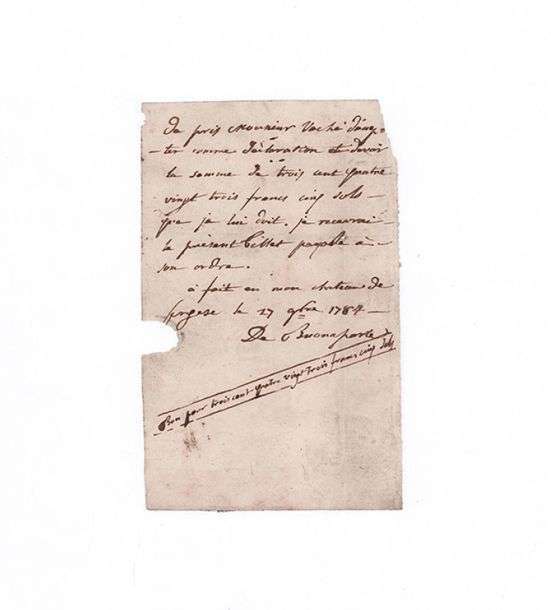 De pris Monsieur Vaché d'aug-
-ter comme déclaration et devoir
la somme de trois cent quatre
vingt trois francs cinq sols —
que je lui doit. je recevrai
le présent billet payable à —
son ordre.
à fait en mon chateau de
le 27 9bre 1784 —
De Buonaparte
Bon pour trois cent quatre vingt trois francs cinq sols